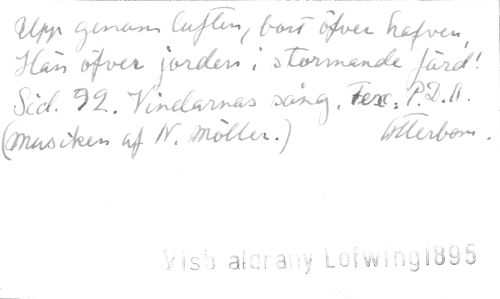 Upp genom luften, bort öfver hafven,
Hän öfver jorden i stormande färd!
Sid. 92. Vindarnas sång. Tex: P.D.A.
(Musiken af N. Möller.) Atterbom.
Visb aldrany Lofwing1895